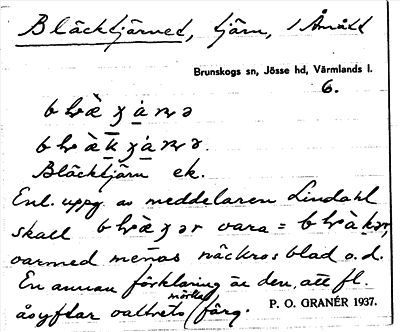 Bläcktjärnet, tjärn, i Åmått
Brunskogs sn, Jösse hd, Värmlands l.
6.
Bläcktjärn ek.
Enl. uppg. av meddelaren Lindahl
skall vara =
varmed menas näckrosblad o. d.
En annan förklaring är den, att fl.
åsyftar vattnets mörka färg.
P. O. GRANÉR 1937.